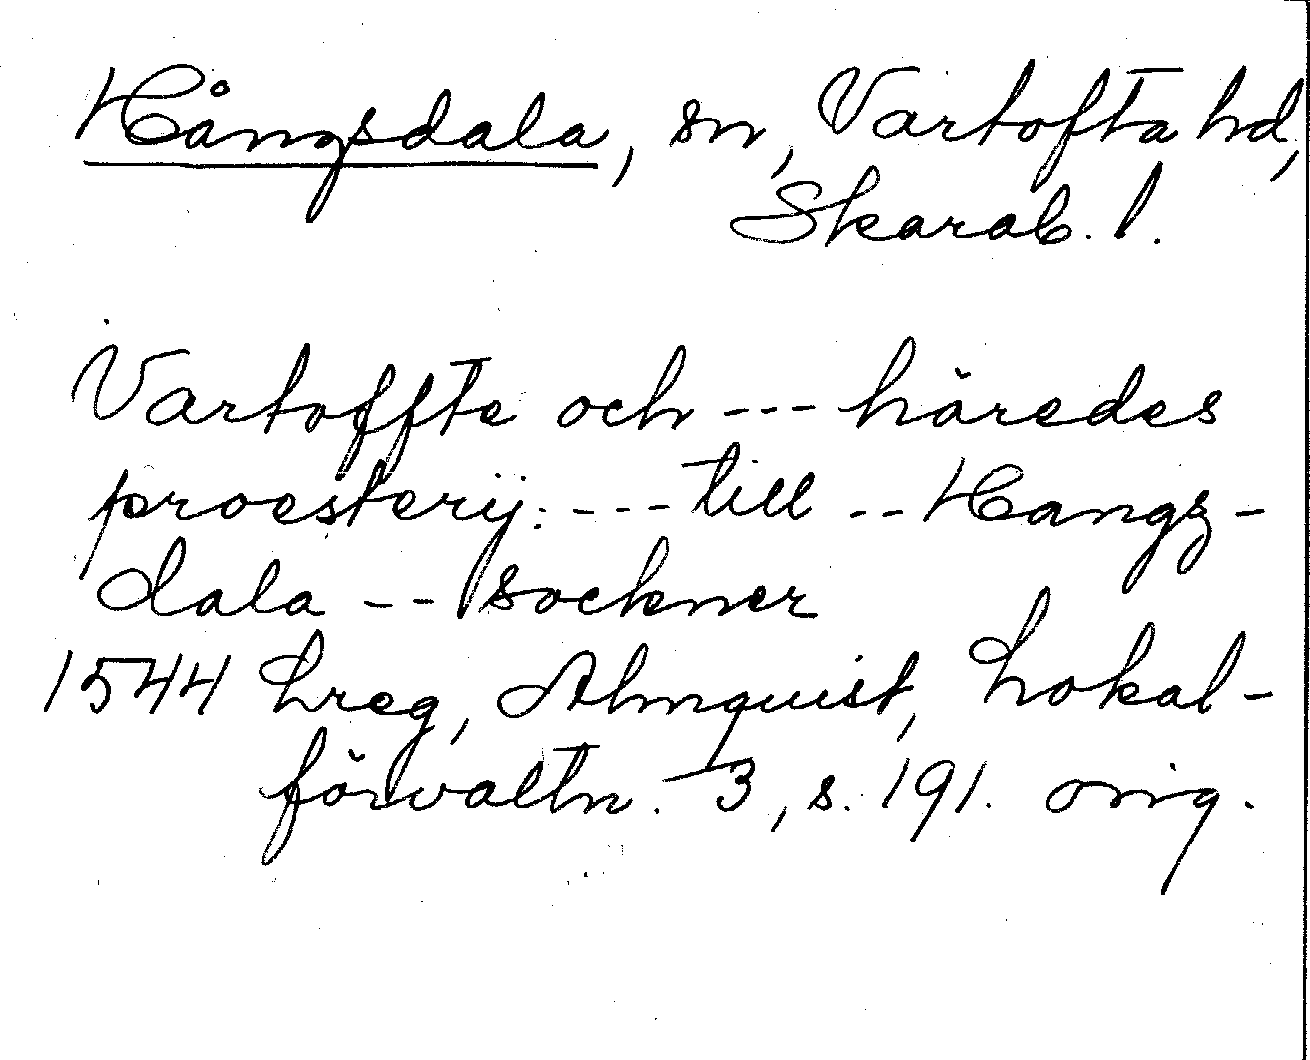 Hångsdala, sn, Vartofta hd,
Skarab. l.
Vartoffte och --- häredes
proesterij: --- till -- Hangz-
dala -- sockner
1544 Lreg, Almquist, Lokal-
förvaltn. 3, s. 191. orig.